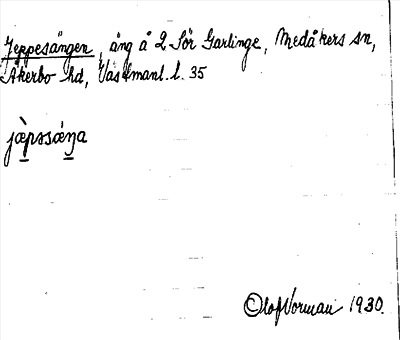 Jeppesängen, äng å 2 Sör Garlinge, Medåkers sn,
Åkerbo hd, Västmanl. l. 35
jæ̀pəsǽŋa
Olof Norman 1930.